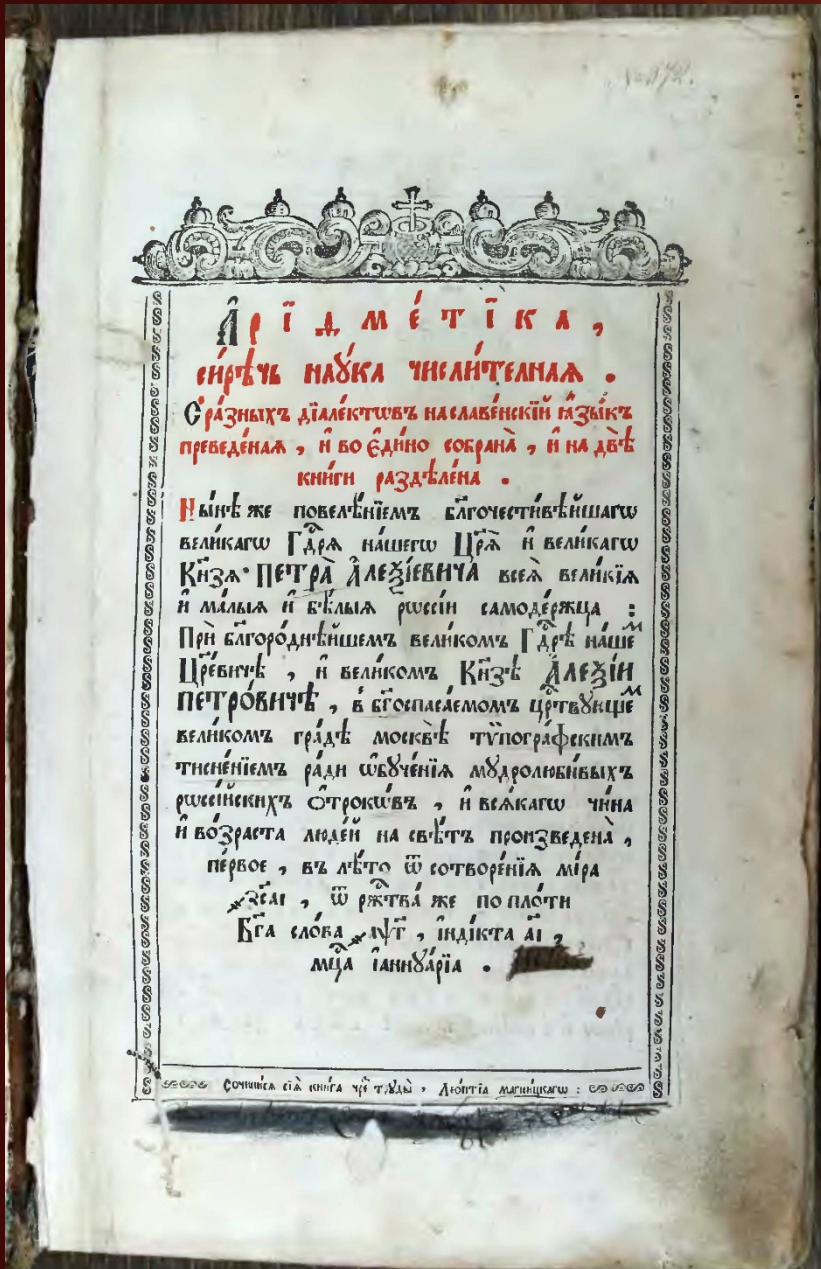 № 172.
А҆рїѳме́тїка,
си́рѣчь наꙋ́ка числи́телная.
С̾ ра́зныхъ дїале́ктѡвъ на славе́нскїй ꙗ҆зы́къ
преведе́ная, и҆ во є҆ди́но собрана̀, и҆ на двѣ̀
кни́ги раздѣле́на.
Ны́нѣ же повелѣ́нїемъ бл҃гочести́вѣйшагѡ
вели́кагѡ Гдⷭ҇рѧ на́шегѡ Цр҃ѧ̀ и҆ вели́кагѡ
Кн҃зѧ ПЕТРА̀ А҆ЛЕѮІ́ЕВИЧА всеѧ̀ вели́кїѧ
и҆ ма́лыѧ и҆ бѣ́лыѧ рѡссі́и самоде́ржца:
Прѝ бл҃горо́днѣйшемъ вели́комъ Гдⷭ҇рѣ на́шеⷨ
Цр҃е́вичѣ, и҆ вели́комъ Кн҃зѣ А҆ЛЕѮІ́И
ПЕТРО́ВИЧѢ, в̾ бг҃оспаса́емомъ црⷭ҇твꙋющеⷨ
вели́комъ гра́дѣ москвѣ̀ тѷпогра́фскимъ
тисне́нїемъ ра́ди ѡ҆бꙋче́нїѧ мꙋдролюби́выхъ
рѡссі́йскихъ ѻ҆́трокѡвъ, и҆ всѧ́кагѡ чи́на
и҆ во́зраста люде́й на свѣ́тъ произведена̀,
пе́рвое, въ лѣ́то ѿ сотворе́нїѧ мі́ра
҂зс҃аі, ѿ ржⷭ҇тва̀ же по пло́ти
Бг҃а сло́ва ҂аѱ҃г, і҆ндї́кта а҃і,
мцⷭ҇а і҆аннꙋа́рїа.
Сочини́сѧ сїѧ̀ кни́га чреⷥ трꙋды̀, Лео́нтїа магни́цкагѡ: